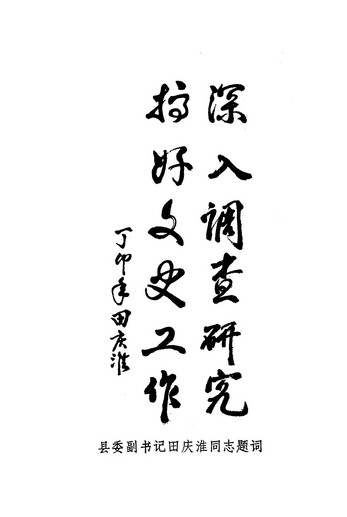 深入调查研究
搞好文史工作
丁卯年田庆淮
县委副书记田庆淮同志题词